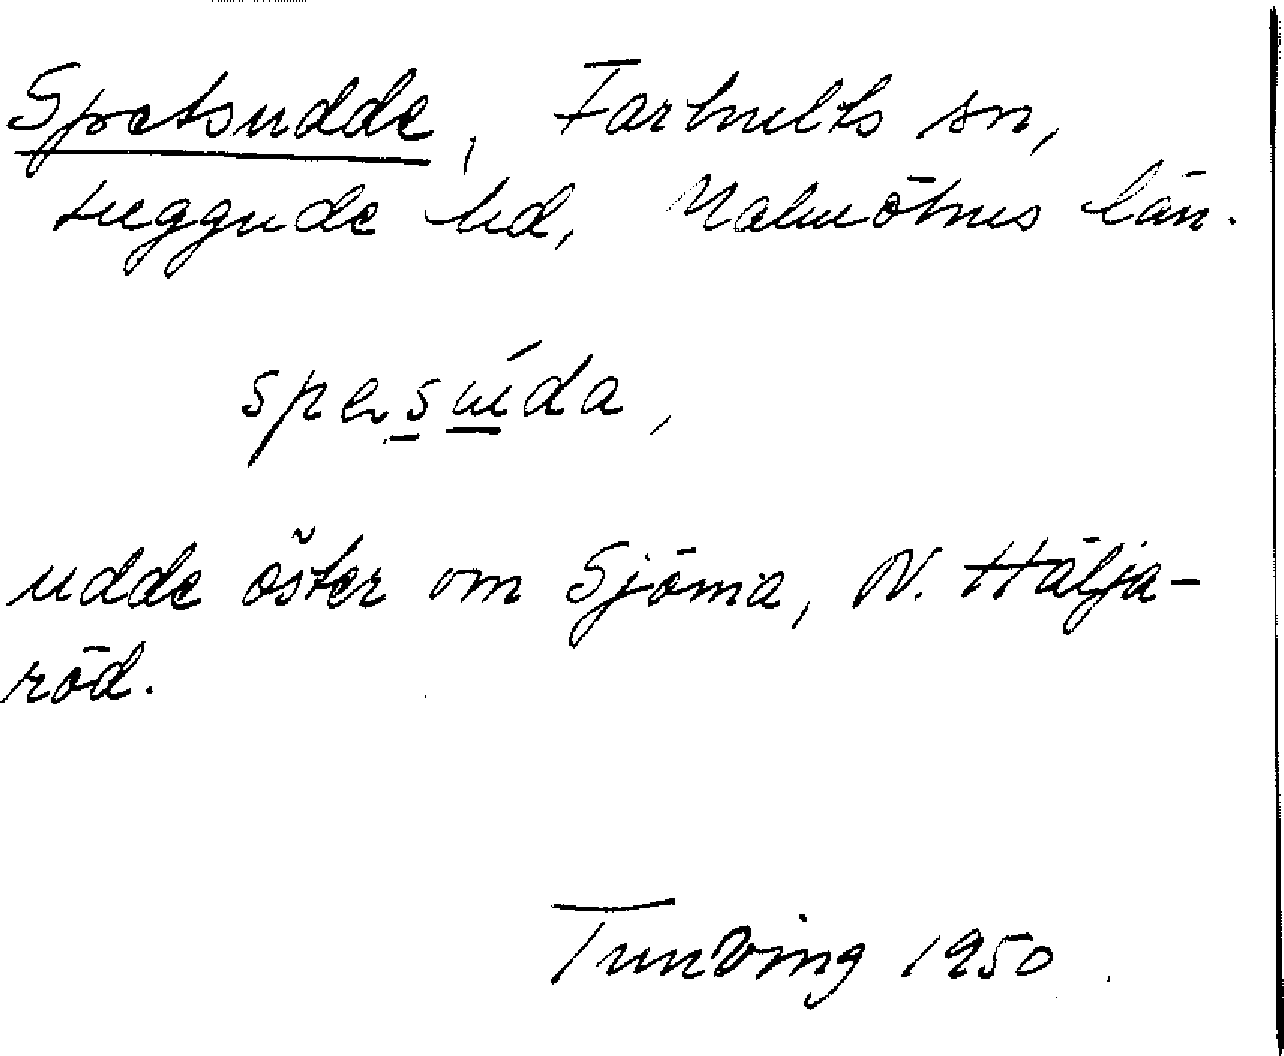 Spetsudde, Farhults sn,
Luggude hd, Malmöhus län.
udde öster om Sjöma, N. Hälja-
röd.
Tunving 1950